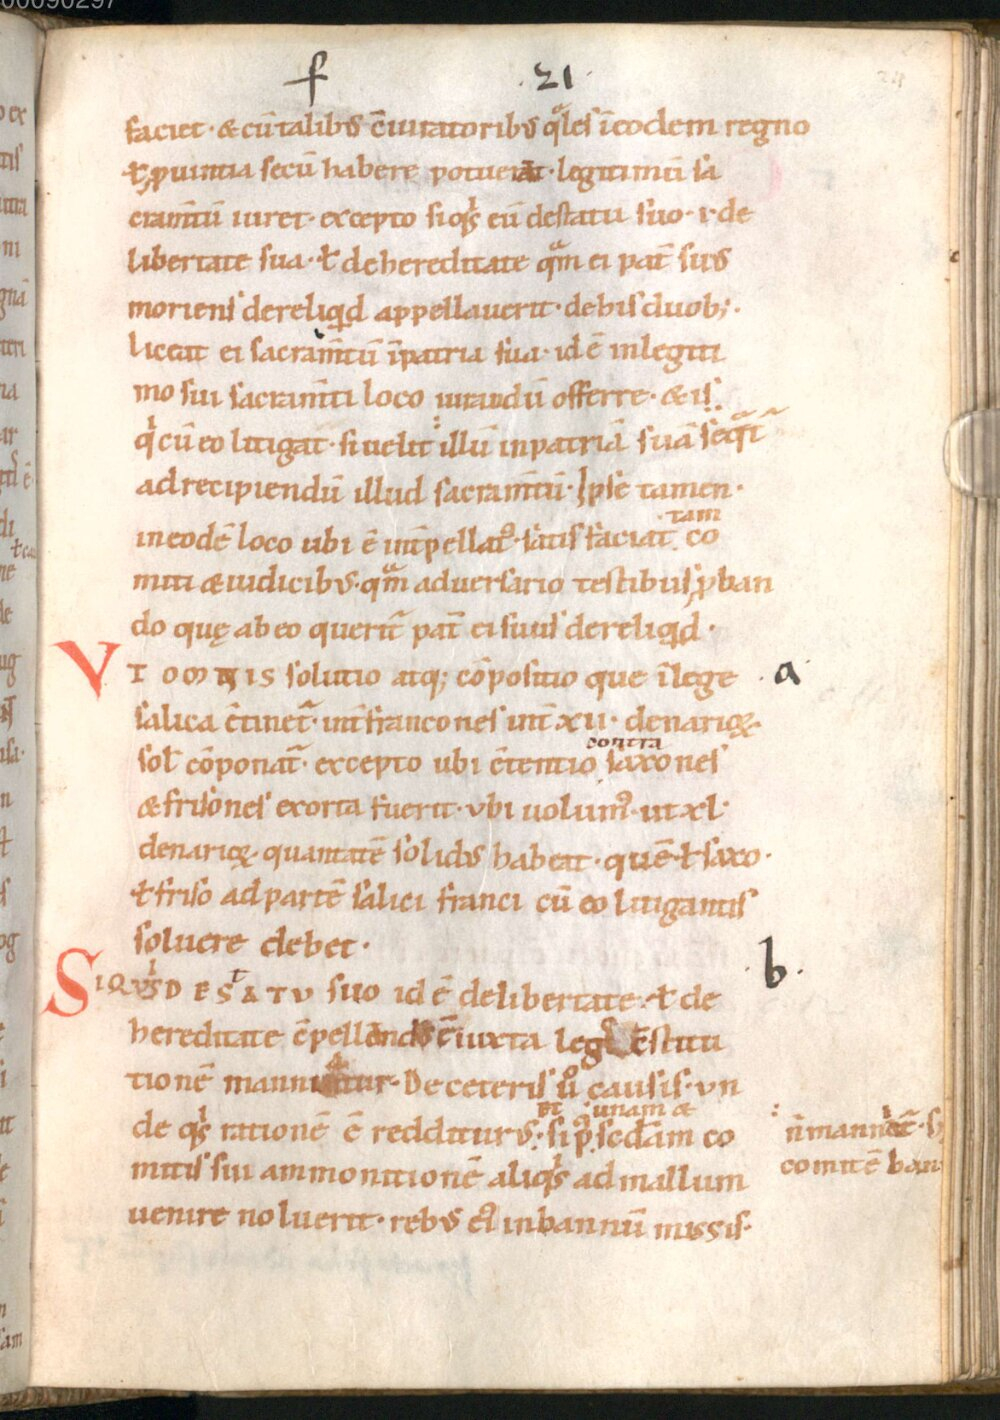 00090297
f .21.
faciet · & cū talibꝰ c̄iuratoribꝰ qͣles ī eodem regno
ł ꝓuintia secū habere potuerit · legitimū sa
cram̄tū iuret · excepto si qͥs eū de statu suo · i · de
libertate sua · ł de hereditate qͣm ei pat̄ suꝰ
moriens dereliqͥd appellauerit · de his duob; ·
liceat ei sacram̄tū ī patria sua · id ē in legiti
mo sui sacram̄ti loco iurandū offerre · & is
qͥ cū eo litigat · si uelit illū in patriā suā seqͣt̄
ad recipiendū illud sacram̄tū · Ipse tamen ·
tam
in eodē loco ubi ē int̄pellatꝰ · satisfaciat co
miti & iudicibꝰ · qͣm aduersario testibus ꝓban
do quę ab eo querit̄ pat̄ ei suus dereliqͥd ·
VT OMNIS solutio atq; cōpositio que ī lege · a ·
salica c̄tinet̄ · int̄ francones int̄ xii · denarioꝝ
contra
sol̄ cōponat̄ · excepto ubi c̄tentio saxones
& frisones exorta fuerit · ubi uolumꝰ · ut xl ·
denarioꝝ quantatē solidꝰ habeat · quē ł saxo ·
ł friso ad partē salici franci cū eo litigantis
soluere debet ·
· b ·
SI QVͥS DE STATV suo id ē de libertate · ł de
hereditate c̄pellendꝰ ē iuxta legͥs c̄stitu
tionē manniatur · De ceteris ū causis · un
unam &
de qͥs rationē ē redditurꝰ · si p̱ scdam co
n̄ manniet̄ · s;
mitis sui ammonitionē aliqͥs ad mallum
comitē ban
uenire noluerit · rebꝰ eꝰ in bannū missis ·